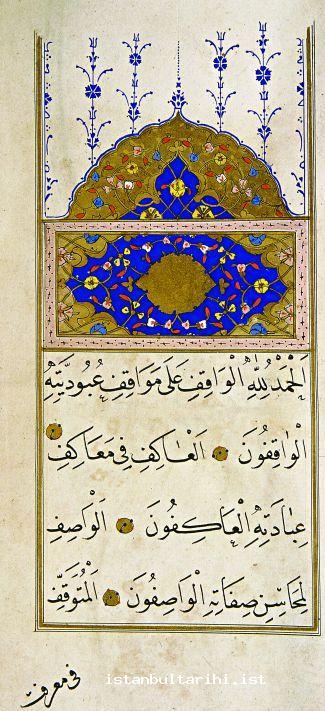 اَلْحَمْدُ لِلّٰهِ الْوَاقِفِ عَلَى مَوَاقِفِ عُبُودِيَّتِهِ
الْوَاقِفُونَ الْعَاكِفِ فِي مَعَاكِفِ
عِبَادَتِهِ الْعَاكِفُونَ الْوَاصِفِ
لِمَحَاسِنِ صِفَاتِهِ الْوَاصِفُونَ الْمُتَوَقِّفِ
في معرفة
istanbultarihi.ist